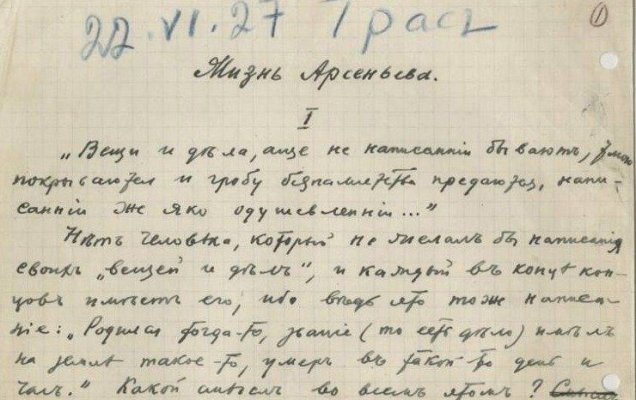 22.VI.27 Грас
1
Жизнь Арсеньева.
I
„Вещи и дѣла, аще не написанніи бываютъ, тмою
покрываются и гробу безпамятства предаются, напи-
санніи же яко одушевленніи..."
Нѣтъ человѣка, который не желалъ бы написанія
своихъ „вещей и дѣлъ", и каждый въ концѣ кон-
цовъ имѣетъ его, ибо вѣдь это тоже написа-
ніе: „Родился тогда-то, званіе (то есть дѣло) имѣлъ
на землѣ такое-то, умеръ въ такой-то день и
часъ." Какой смыслъ во всемъ этомъ?